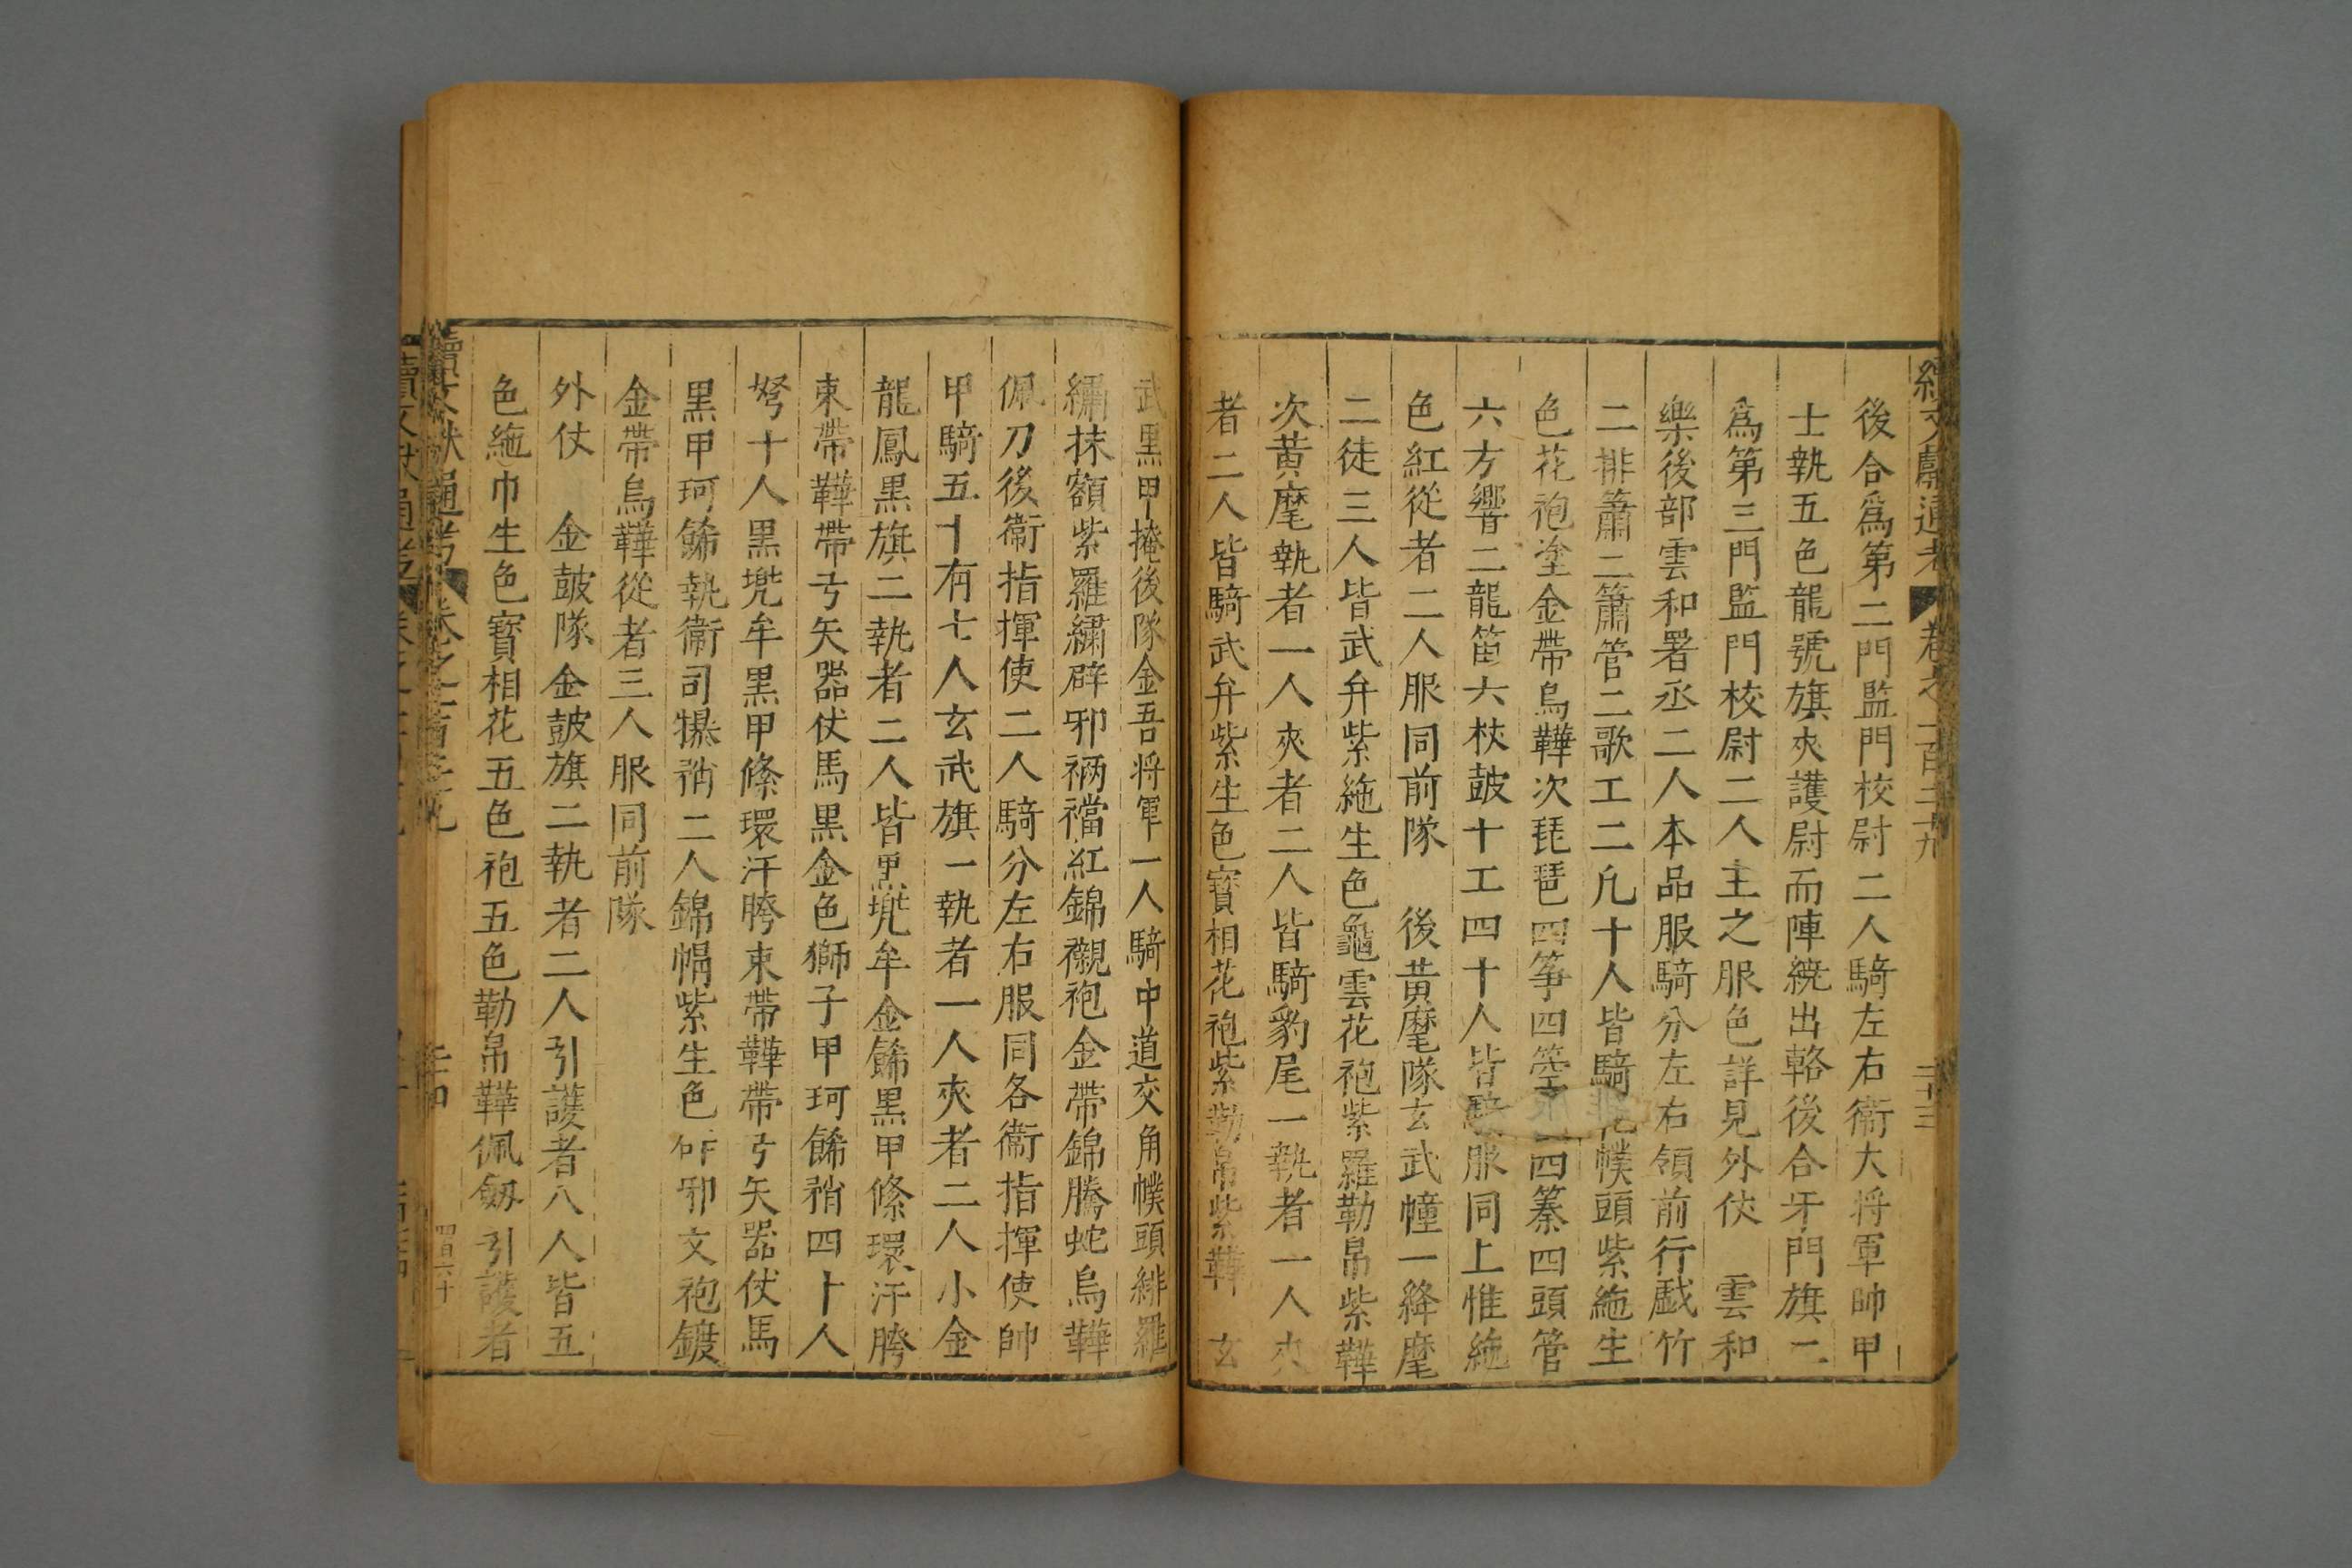 續文獻通考 卷之一百二十九 二十三
後合爲第二門監門校尉二人騎左右衞大將軍帥甲
士執五色龍號旗夾護尉而陣繞出輅後合牙門旗二
爲第三門監門校尉二人主之服色詳見外仗 雲和
樂後部雲和署丞二人本品服騎分左右領前行戲竹
二排簫二簫管二歌工二凡十人皆騎花幞頭紫絁生
色花袍塗金帶烏鞾次琵琶四箏四箜四纂四頭管
六方響二龍笛六杖鼓十工四十人皆騎服同上惟絁
色紅從者二人服同前隊 後黃麾隊玄武幢一絳麾
二徒三人皆武弁紫絁生色龜雲花袍紫羅勒帛紫鞾
次黃麾執者一人夾者二人皆騎豹尾一執者一人夾
者二人皆騎武弁紫生色寳相花袍紫勒帛紫鞾 玄
武黑甲掩後隊金吾將軍一人騎中道交角幞頭緋羅
繡抹額紫羅繡辟邪裲襠紅錦襯袍金帶錦騰蛇烏鞾
佩刀後衞指揮使二人騎分左右服同各衞指揮使帥
甲騎五十有七人玄武旗一執者一人夾者二人小金
龍鳳黑旗二執者二人皆黑兠牟金餙黑甲絛環汗胯
束帶鞾帶弓矢器仗馬黑金色獅子甲珂餙矟四十人
弩十人黑兠牟黑甲絛環汗胯束帶鞾帶弓矢器仗馬
黑甲珂餙執衞司犦矟二人錦㡌紫生色辟邪文袍鍍
金帶烏鞾從者三人服同前隊
外仗 金鼓隊金鼓旗二執者二人引護者八人皆五
色絁巾生色寳相花五色袍五色勒帛鞾佩劔引護者
續文獻通考 卷之一百二十九 二十四 四百六十